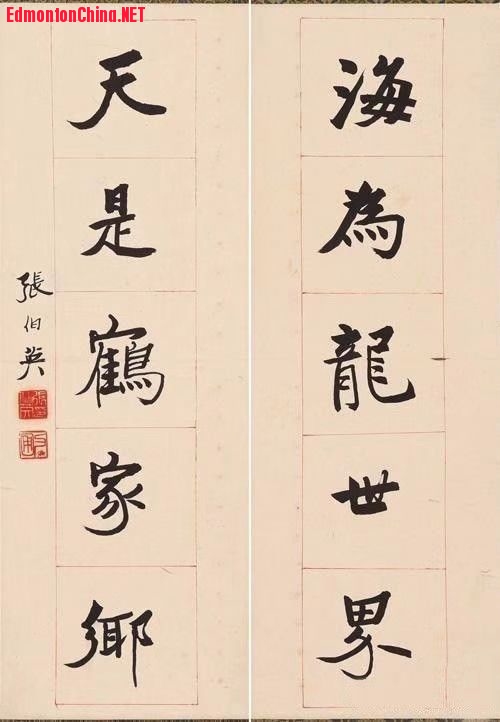 EdmontonChina.NET
海為龍世界
天是鶴家鄉
張伯英